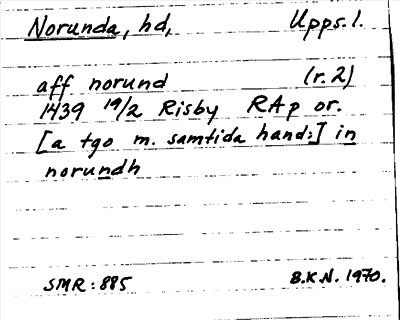 Norunda, hd, Upps. l.
aff norund (r. 2)
1439 19/2 Risby RAp or.
[a tgo m. samtida hand:] in
norundh
SMR: 885 B.K.N. 1970.